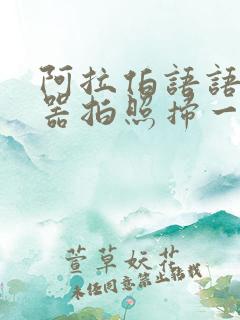 阿拉伯語語
器拍照掃一
萱草妖花
未经同意禁止转载